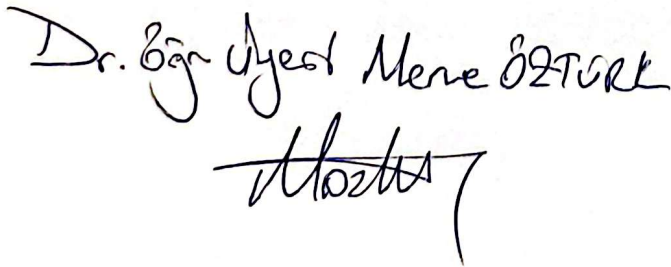 Dr. Öğr Üyesi Merve ÖZTÜRK